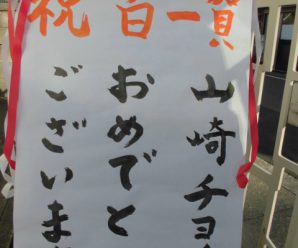 祝百一賀
山崎チヨ
おめでと
ございま